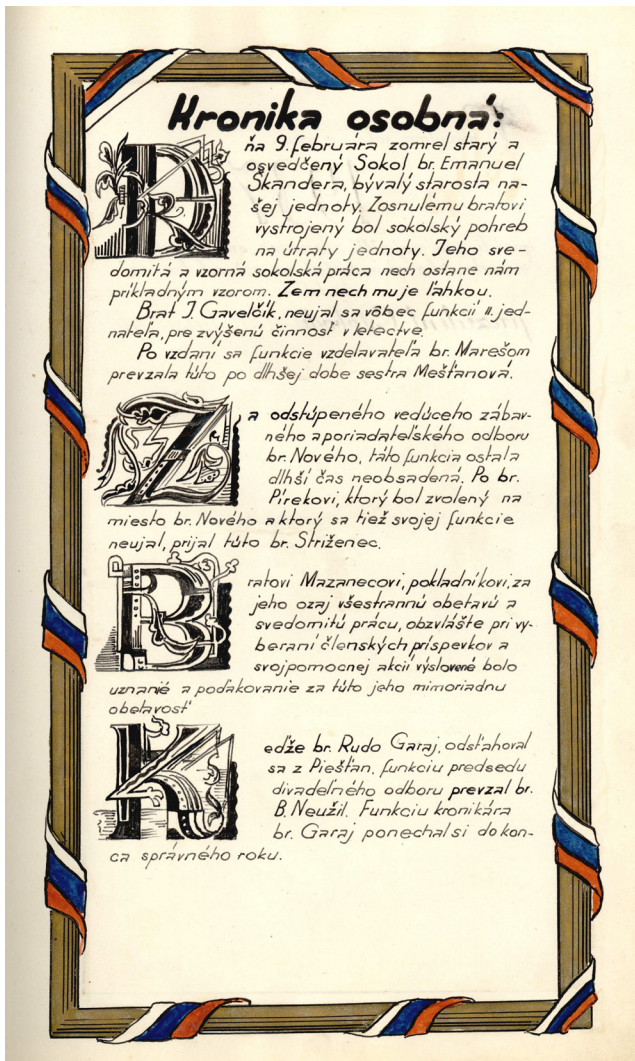 Kronika osobná:
Dňa 9. februára zomrel starý a
osvedčený Sokol br. Emanuel
Škandera, bývalý starosta na-
šej jednoty. Zosnulému bratovi
vystrojený bol sokolský pohreb
na útraty jednoty. Jeho sve-
domitá a vzorná sokolská práca nech ostane nám
príkladným vzorom. Zem nech mu je ľahkou.
Brat J. Gavelčík, neujal sa vôbec funkcií II. jed-
nateľa, pre zvýšenú činnosť v letectve.
Po vzdaní sa funkcie vzdelavateľa br. Marešom
prevzala túto po dlhšej dobe sestra Mešťanová.
Za odstúpeného vedúceho zábav-
ného a poriadateľského odboru
br. Nového, táto funkcia ostala
dlhší čas neobsadená. Po br.
Pírekovi, ktorý bol zvolený na
miesto br. Nového a ktorý sa tiež svojej funkcie
neujal, prijal túto br. Striženec.
Bratovi Mazanecovi, pokladníkovi, za
jeho ozaj všestrannú obetavú a
svedomitú prácu, obzvlášte pri vy-
beraní členských príspevkov a
svojpomocnej akcií výslovené bolo
uznanié a poďakovanie za túto jeho mimoriadnu
obetavosť
Keďže br. Rudo Garaj, odsťahoval
sa z Piešťan, funkciu predsedu
divadelného odboru prevzal br.
B. Neužil. Funkciu kronikára
br. Garaj ponechal si do kon-
ca správneho roku.